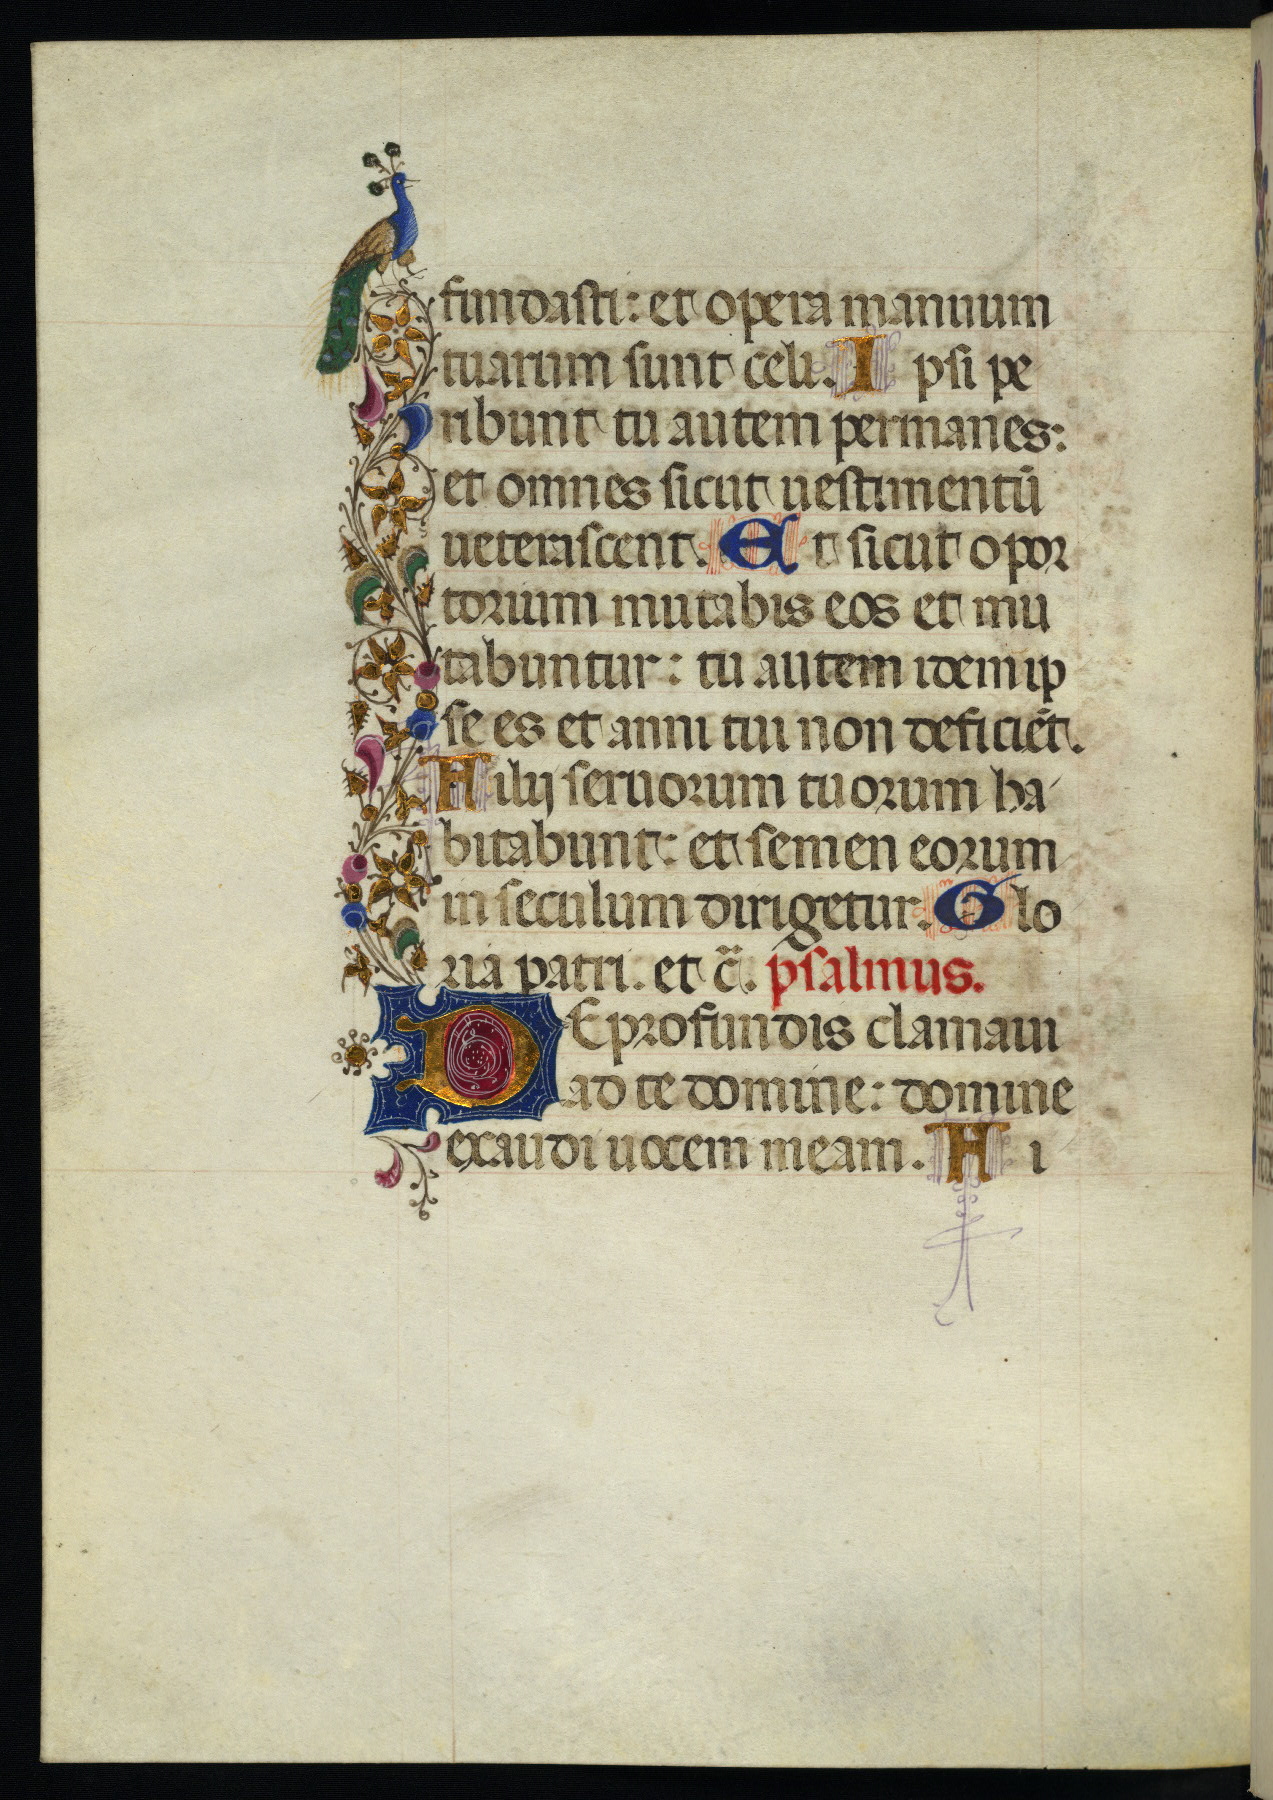 fundasti: et opera manuum
tuarum sunt celi. I psi pe
ribunt tu autem permanes:
et omnes sicut uestimentū
ueterascent. Et sicut opor
torium mutabis eos et mu
tabuntur: tu autem idem ip
se es et anni tui non deficiēt.
Filij seruorum tuorum ha
bitabunt: et semen eorum
in seculum dirigetur. Glo
ria patri. et c̄. psalmus.
DE profundis clamaui
ad te domine: domine
exaudi uocem meam. F i